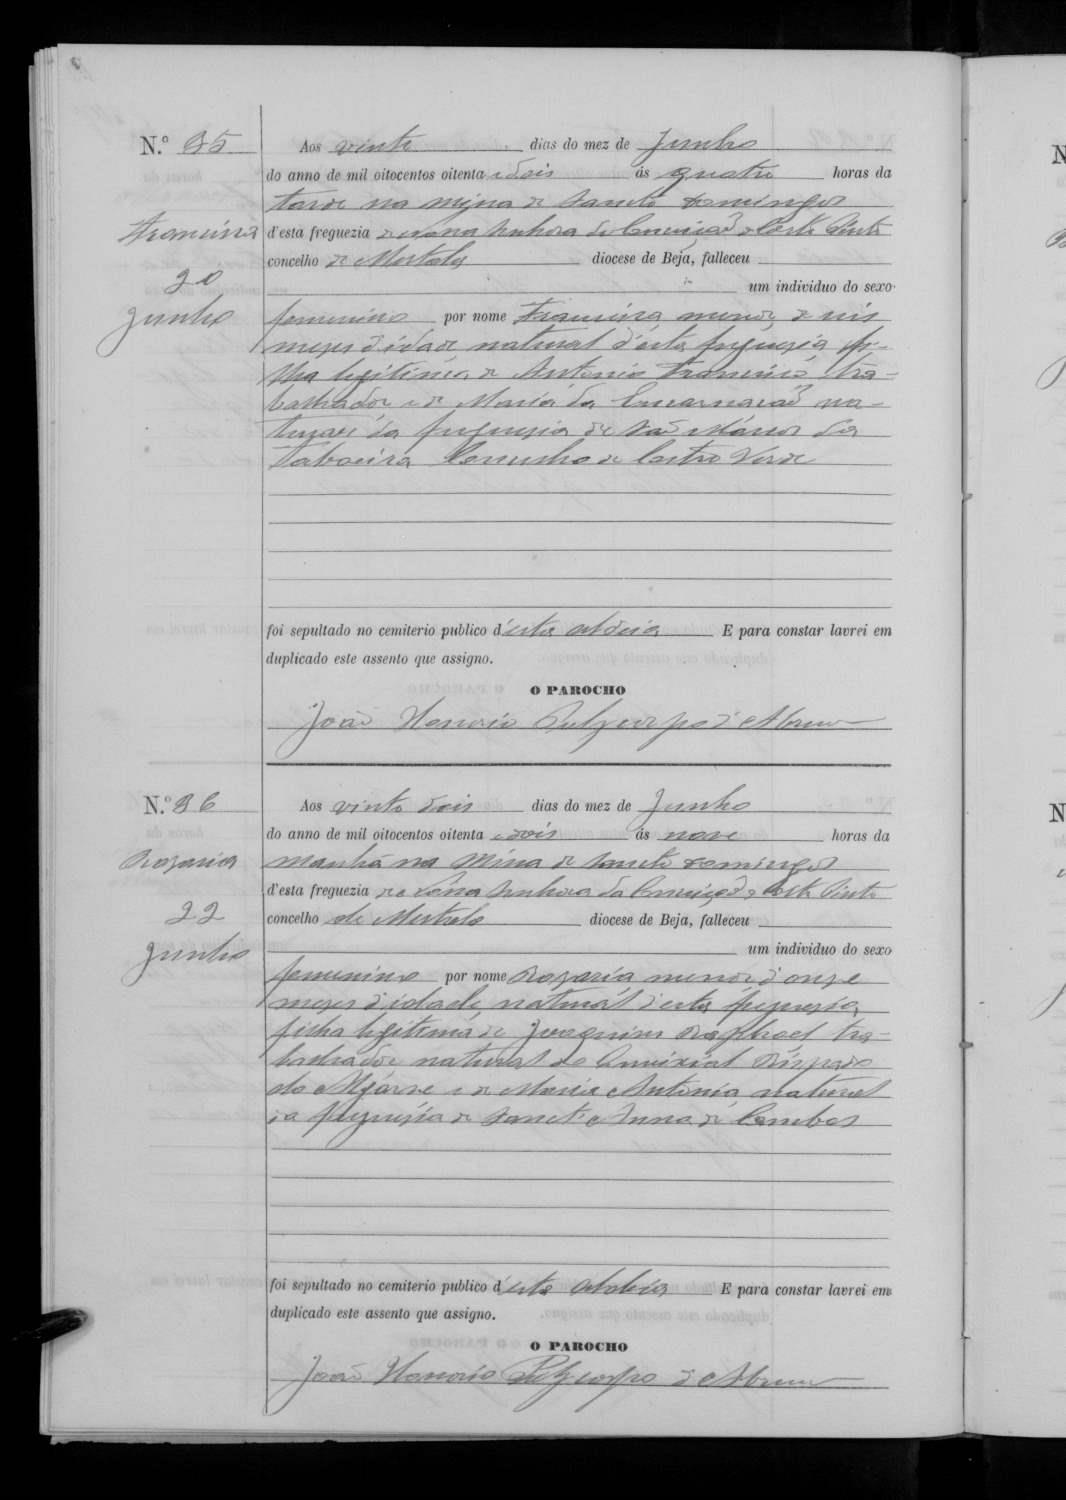 N.º 35
Aos vinte dias do mez de Junho
do anno de mil oitocentos oitenta e dois ás quatro horas da
tarde na Mina de Sancto Domingos
Francisca
d'esta freguezia de Nossa Senhora da Conceição de Corte Pinto
concelho de Mertola diocese de Beja, falleceu
20
um individuo do sexo
Junho
femenino por nome Francisca menor de
meses d'idade natural d'esta freguesia fi-
lha legitima de Antonio Francisco tra-
balhador e de Maria da Encarnação na-
turaes da freguesia de São Marcos da
Taboeira Concelho de Castro Verde
foi sepultado no cemiterio publico d'esta aldeia E para constar lavrei em
duplicado este assento que assigno.
O PAROCHO
João Honorio Polycarpo d'Abreu
N.º 36
Aos vinte dois dias do mez de Junho
do anno de mil oitocentos oitenta e dois ás nove horas da
Rozaria
manhã na Mina de Sancto Domingos
d'esta freguezia de Nossa Senhora da Conceição de Corte Pinto
22
concelho de Mertola diocese de Beja, falleceu
Junho
um individuo do sexo
femenino por nome Rozaria menor d'onze
meses d'idade, natural d'esta freguesia,
filha legitima de Joaquim Raphael tra-
balhador natural do Bispado
do Algarve e de Maria Antonia natural
da freguesia de Sanct'Anna de Cambas
foi sepultado no cemiterio publico d'esta aldeia E para constar lavrei em
duplicado este assento que assigno.
O PAROCHO
João Honorio Polycarpo d'Abreu